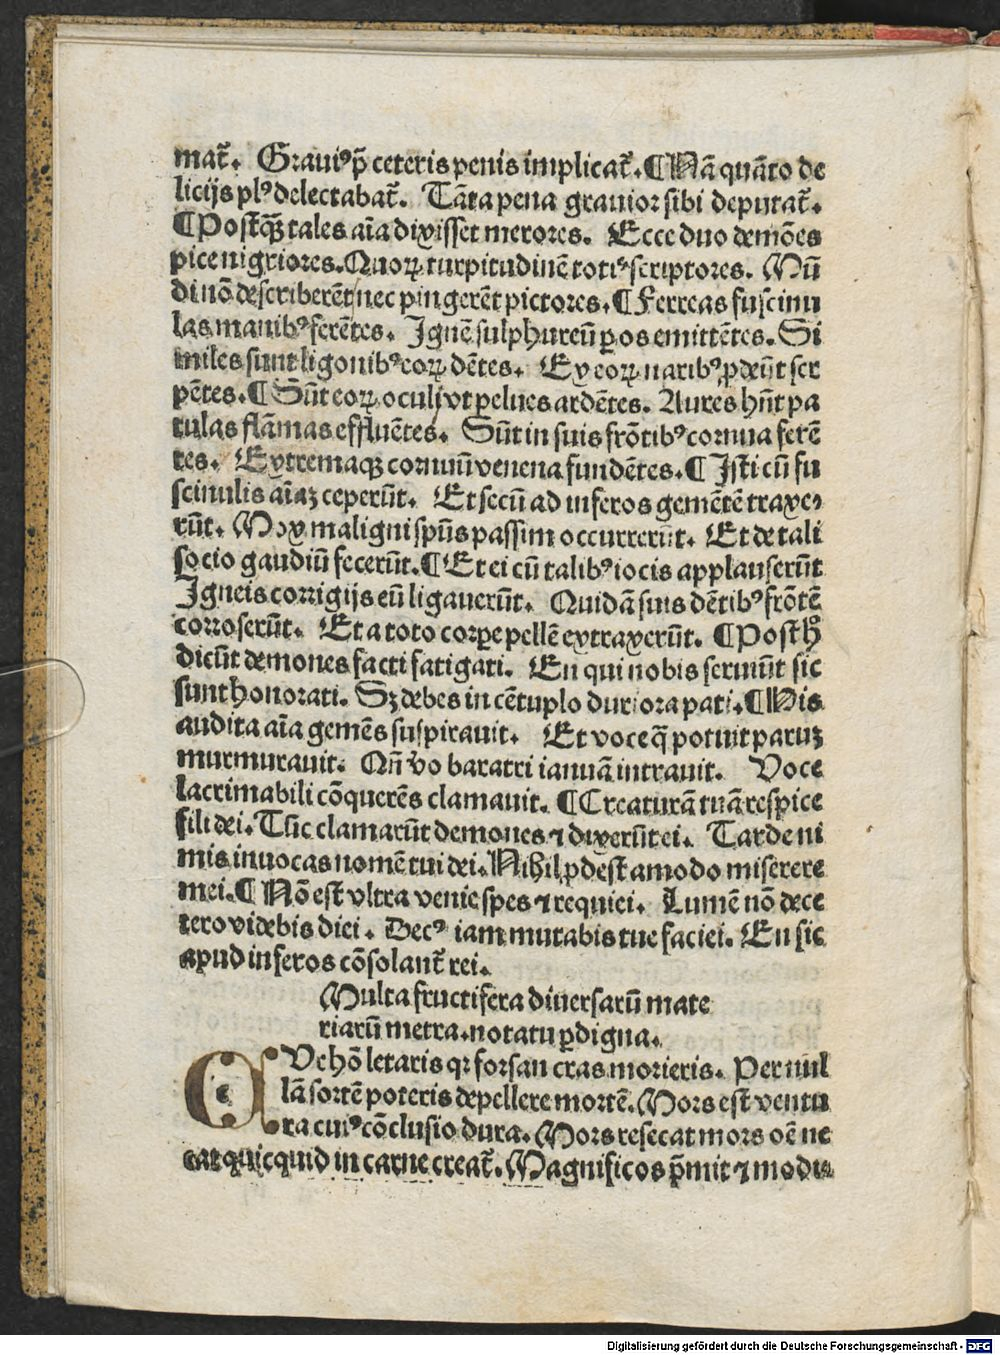 mat̃. Graui⁹ p̃ ceteris penis implicat̃. ¶ Nã quãto de
licijs pl⁹ delectabat̃. Tãta pena grauior sibi deputat̃.
¶ Postqꝫ tales aĩa dixisset merores. Ecce duo demões
pice nigriores. Quoꝝ turpitudinẽ toti⁹ scriptores. Mũ
di nõ describerẽt nec pingerẽt pictores. ¶ Ferreas fuscinu
las manib⁹ ferẽtes. Ignẽ sulphureũ ꝑ os emittẽtes. Si
miles sunt ligonib⁹ eoꝝ dẽtes. Ex eoꝝ narib⁹ ꝓdeũt ser
pẽtes. ¶ Sũt eoꝝ oculi vt pelues ardẽtes. Aures hñt pa
tulas flãmas effluẽtes. Sũt in suis frõtib⁹ cornua ferẽ
tes. Extremaqꝫ cornuũ venena fundẽtes. ¶ Isti cũ fu
scinulis aĩaꝫ ceperũt. Et secũ ad inferos gemẽtẽ traxe⸗
rũt. Mox maligni spũs passim occurrerũt. Et de tali
socio gaudiũ fecerũt. ¶ Et ei cũ talib⁹ iocis applauserũt
Igneis corrigijs eũ ligauerũt. Quidã suis dẽtib⁹ frõtẽ
corroserũt. Et a toto corpe pellẽ extraxerũt. ¶ Posth̊
dicũt demones facti fatigati. En qui nobis seruiũt sic
sunt honorati. Sꝫ debes in cẽtuplo duriora pati. ¶ His
audita aĩa gemẽs suspirauit. Et voce q̃ potuit paruꝫ
murmurauit. Qñ vo baratri ianuã intrauit. Voce
lacrimabili cõquerẽs clamauit. ¶ Creaturã tuã respice
fili dei. Tũc clamarũt demones ⁊ dixerũt ei. Tarde ni
mis inuocas nomẽ tui dei. Nihil ꝓdest amodo miserere
mei. ¶ Nõ est vltra venie spes ⁊ requiei. Lumẽ nõ dece
tero videbis diei. Dec⁹ iam mutabis tue faciei. En sic
apud inferos cõsolant̃ rei.
Multa fructifera diuersarũ mate
riarũ metra. notatu ꝑdigna.
CUr hõ letaris qꝛ forsan cras morieris. Per nul
lã sortẽ poteris depellere mortẽ. Mors est ventu
ra cui⁹ cõclusio dura. Mors resecat mors oẽ ne
cat quicquid in carne creat̃. Magnificos p̃mit ⁊ modi
Digitalisierung gefördert durch die Deutsche Forschungsgemeinschaft - DFG